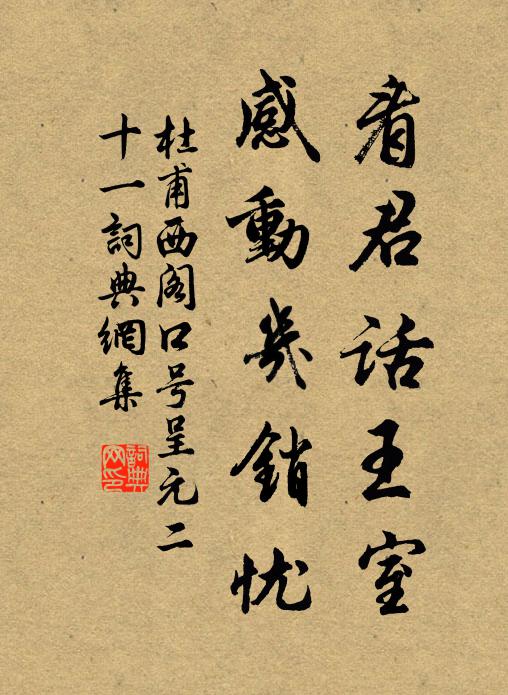 看君話王室
感動幾銷忧
杜甫西阁口号呈元二
十一詞典網集
詞典
网印